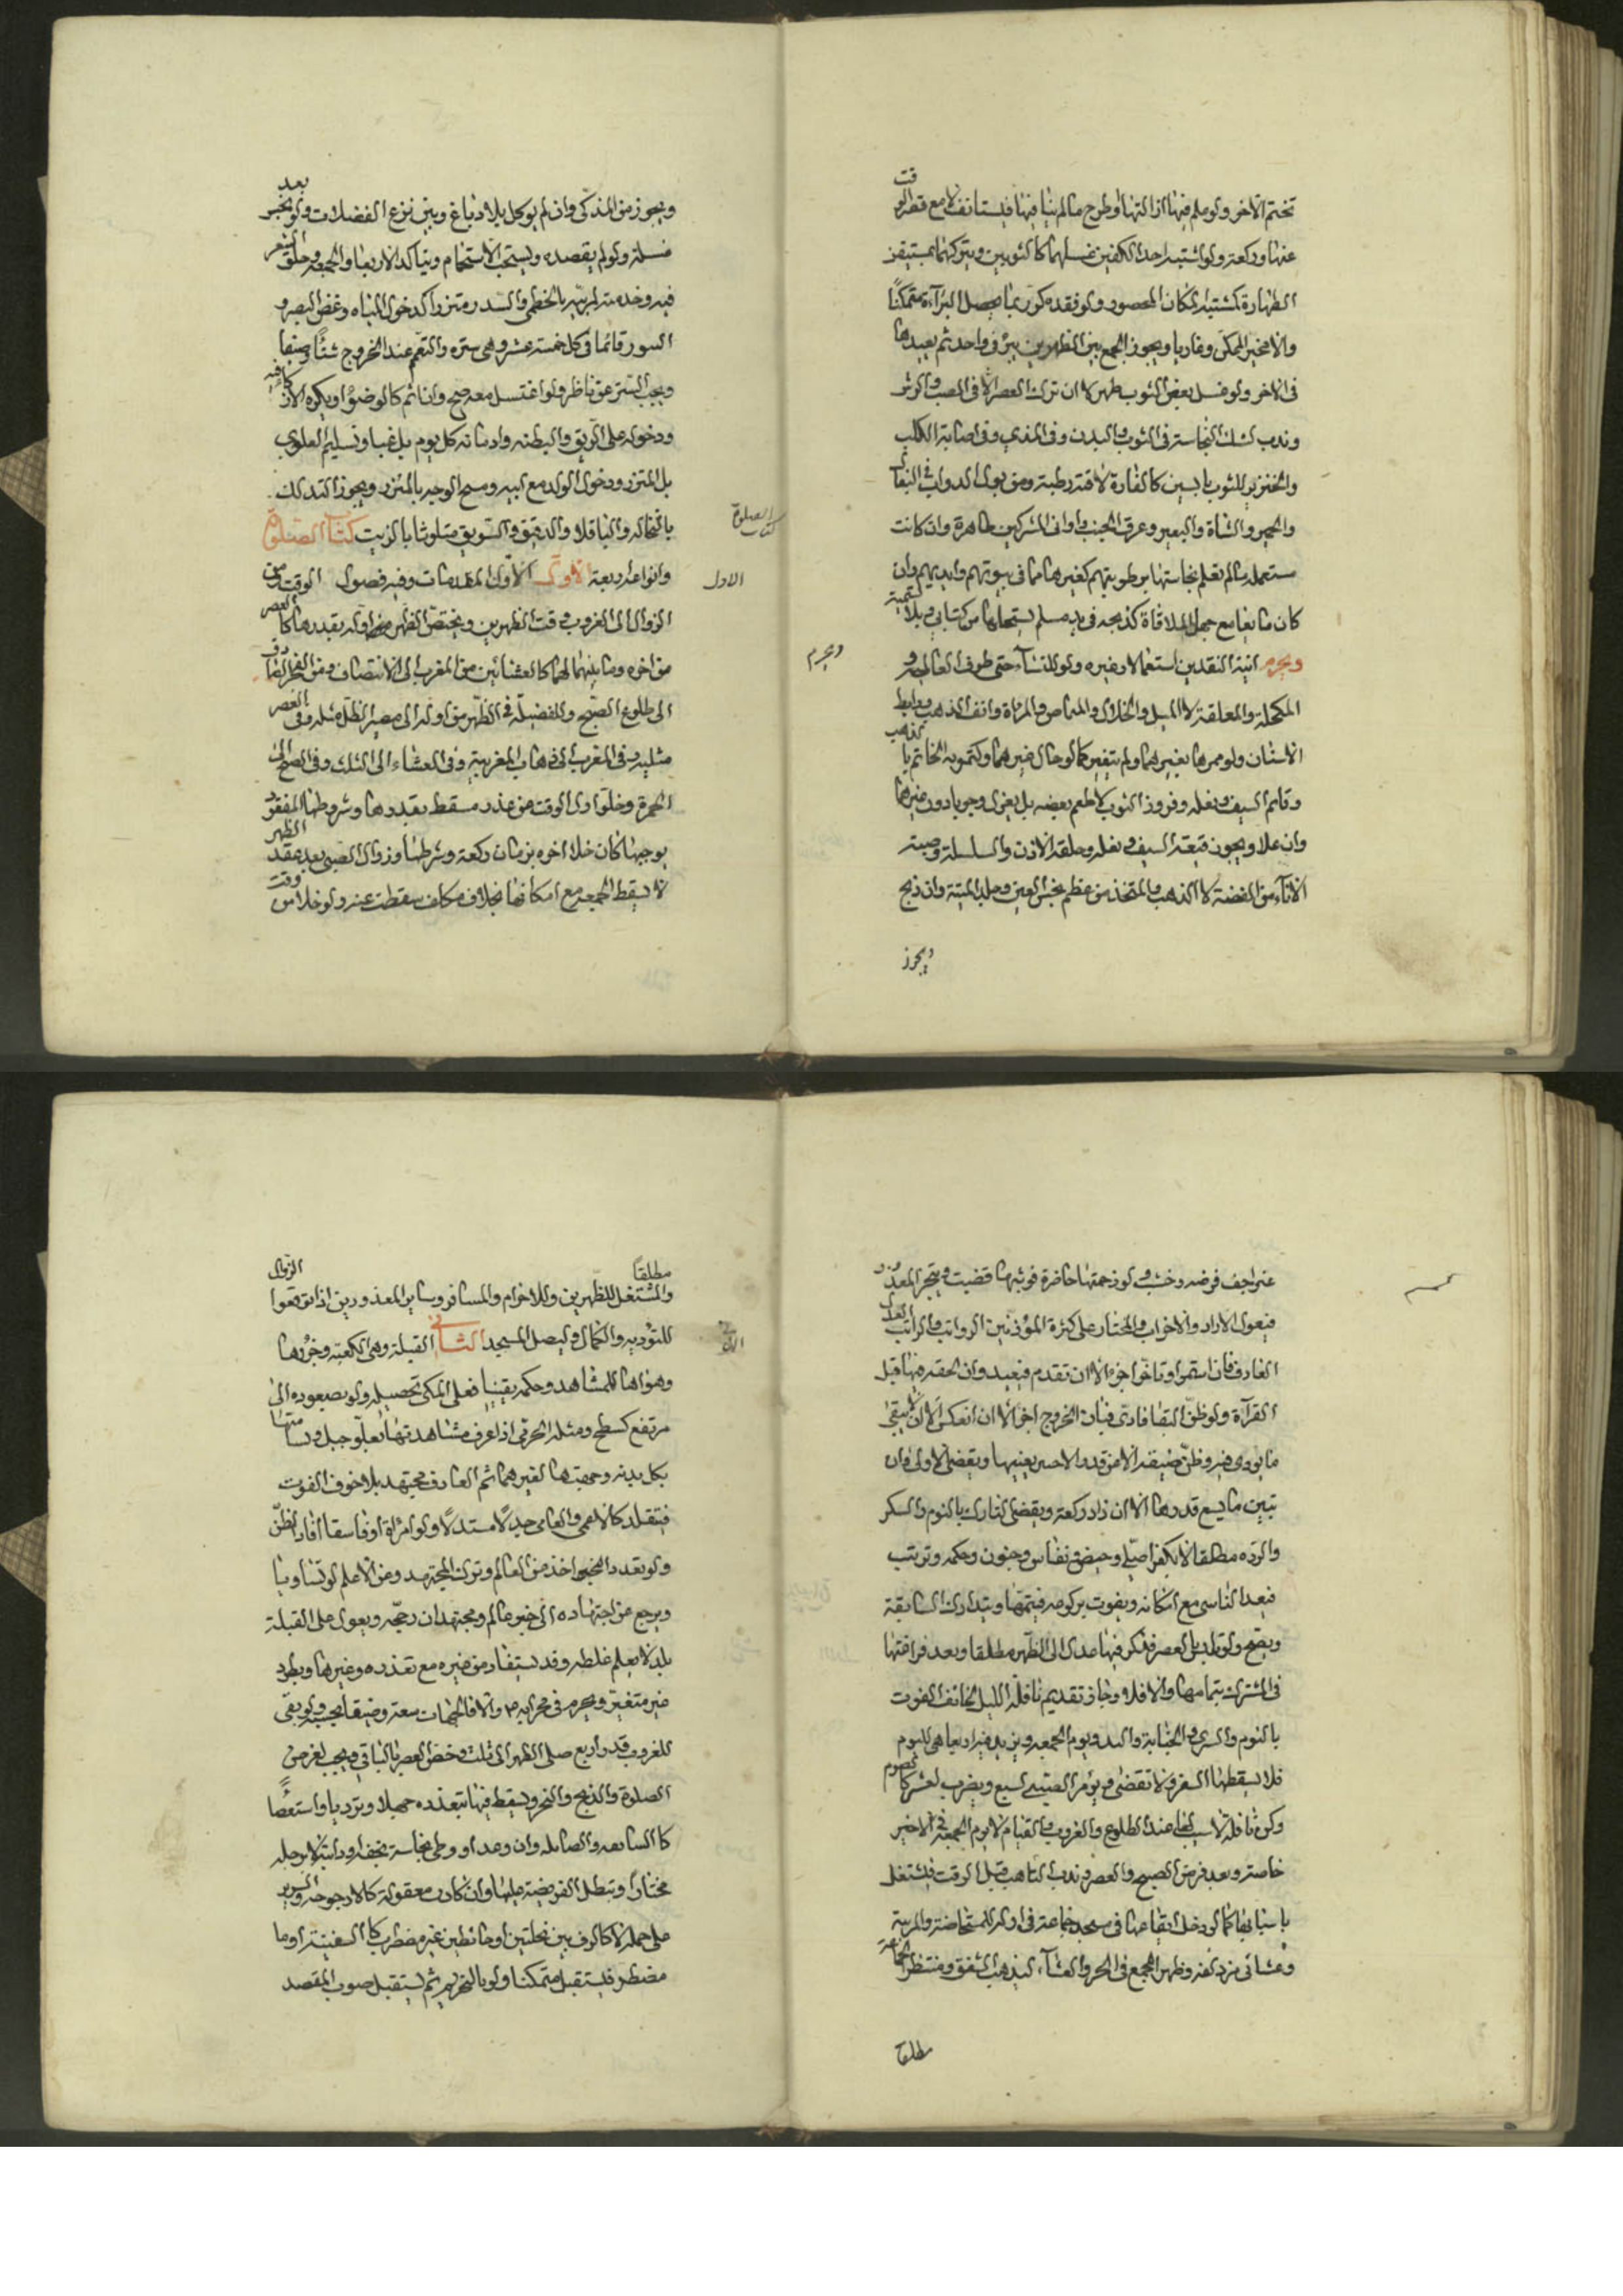 تختم الآخر ولو علم فيها ازالتها او طرح ما لم ينافها فليستانف لا مع قصر الوقت
عنها وركعة ولو اشتبه احد الكفين غسلهما كالثوبين ويتركهما بمستيقن
الطهارة كمشتبه المكان المحصور ولو فقده كرر بما يحصل البراءة متمكنا
والا تخير الممكن وعاريا ويجوز الجمع بين الظهرين في واحد ثم يعيدها
في الاخر ولو غسل بعض الثوب طهر لا ان ترك العصر الا في الصب والرش
وندب لشك النجاسة في الثوب والبدن وفي المذي وفي اصابة الكلب
والخنزير للثوب يابسين كالفارة لاقته رطبة ومن بول الدواب في البغال
والحمير والشاة والبعير وعرق الجنب واواني المشركين طاهرة وان كانت
مستعملة ما لم تعلم نجاستها برطوبتهم كغيرها مما في بيوتهم وايديهم وان
كان مائعا مع جهل الملاقاة كذبحه في يد مسلم يستحلها من كتابي وبلا تسمية
ويحرم
ويحرم انية النقدين استعمالا وغيره ولو للنساء حتى ظروف الغالية و
المكحلة والمعلقة لا الميل والخلال والمصاص والمرآة وانف الذهب ورابط
الاسنان ولو موها بغيرهما ولم يتغير كما لو حال غيرهما وكتمويه الخاتم بالذهب
وقائم السيف ونعله وفروز الثوب لاطعم بعضه بل يعزل وجوبا دون غيرها
وان علا ويجوز قبيعة السيف ونعله وحلقة الاذن والسلسلة وضبة
الاناء من الفضة لا الذهب والمتخذ من عظم نجس العين وجلد الميتة وان ذبح
ويجوز
ويجوز من المذكى وان لم يوكل بلا دباغ وبين نزع الفضلات ولو بخبر بعد
غسلة ولو لم يقصده ويستحب الاستحمام ويتاكد الاربعا والجمعة وحلق الشعر
فيه وخدمته لربه بالخطمي والسدر متزرا كدخول المياه وغض البصر و
السور قائما في كل خمسة عشر وهي ستره والتعمم عند الخروج شتاء وصيفا
ويجب الستر عن ناظر ولو اغتسل معه صح وان اثم كالوضوء ويكره الاذن
ودخوله على الريق والبطنة وادمانه كل يوم بل غبا وتسليم العلوي
بل المتزر ودخول الولد مع ابيه ومسح الوجه بالمئزر ويجوز التدلك
بالنخالة والباقلا والدقيق والسويق متلوثا بالزيت كتاب الصلوة
كتاب الصلوة
وانواعه اربعة الاول الاول المقدمات وفيه فصول الوقت ومن
الاول
الزوال الى الغروب وقت الظهرين ويختص الظهر من اوله بقدرها كالعصر
من اخره وما بينهما لهما كالعشائين من المغرب الى الانتصاف ومن الفجر
الى طلوع الصبح وللفضيلة في الظهر من اوله الى مصير الظل مثله وفي العصر
مثليه وفي المغرب الى ذهاب المغربية وفي العشاء الى الثلث وفي الصبح الى
الحمرة وخلو اول الوقت من عذر مسقط بقدرها وشروطها المفقودة
يوجبها كان خلا اخره بزمان ركعة وشرطها وزوال الصبي بعد عقد الظهر
لا يسقط الجمعة مع امكانها بخلاف مكلف سقطت عنه ولو خلا من وقت
عنه اجف فرضه وخشي لو زحمتها حاضرة فوتها قضيت ويتحرى المعذور
فيعول الاراد والاحزاب والمختار على كثرة المؤذنين الرواتب والراتب العدل
العارف فان استمر او تاخر اجزء الا ان تقدم فيعيد وان لحقه منها قبل
القراءة ولو ظن البقا فادى فبان الخروج اجزا الا ان انعكس الا ان لا يبقى
ما يودى فيه وظن ضيقه الا من قدر الاخير يعينها ويقضي الاولى وان
تبين ما يسع قدرها الا ان زاد ركعة ويقضي التارك بالنوم والسكر
والردة مطلقا لا بكفر اصلي وحيض ونفاس وجنون وحكمه وترتب
فيعد الناسي مع امكانه ويفوت بركوعه فيتمها ويتدارك السابقة
ويصح ولو تلبس بالعصر فذكر فيها عدل الى الظهر مطلقا وبعد فراغها
في المشترك بتمامها والا فلا وجاز تقديم نافلة الليل لخائف الفوت
بالنوم والسرى والجنابة والبرد ويوم الجمعة ويزيد فيه اربعا هي لليوم
فلا يسقطها السفر ولا تقضى ويؤمر الصبي لسبع ويضرب لعشر كالصوم
وكره نافلة لا سبب لها عند الطلوع والغروب والقيام لا يوم الجمعة في الاخير
خاصة وبعد فرض الصبح والعصر وندب التاهب قبل الوقت فيشتغل
باسبابها كما لو دخل ايقاعها في مسجد جماعة في اوله للمستحاضة والمربية
وعشائي مزدلفة وظهر المجمع في الحر والعشاء ليذهب الشفق ومنتظر الجماعة
مطلقا
مطلقا والمتنفل للظهرين وللاحرام والمسافر وسائر المعذورين اذا توقعوا الزوال
للتوديه والكمال وليصل المسجد الثاني القبلة وهي الكعبة وجزؤها
الثاني
وهواها للمشاهد وحكمه يقينا فعلى المكي تحصيله ولو بصعوده الى
مرتفع كسطح ومثله الحرمي اذا عرف مشاهدتها بعلو جبل وسامتها
بكل بدنه وجهتها لغيرهما ثم العارف مجتهد بلا خوف الفوت
فيتقلد كالاعمى والعامي عدلا مستدلا ولو امراة او فاسقا افاد الظن
ولو تعدد المخبر اخذ من العالم وترك المجتهد وعن الاعلم لو تساويا
ويرجع من اجتهاده الى خبر عالم ومجتهدان رجحه ويعول على القبلة
بلد لا يعلم غلطه وقد يستفاد من غيره مع تعذره وغيرها ويطرد
غير متغير ويحرم في محرابه ص والا فالجهات سعة وضيقا بحسبه ولو بقي
للغروب قدر اربع صلى الظهر الى ثلث وخص العصر بالباقي ويجب لفرض
الصلوة والذبح والنحر ويسقط فيها بتعذره جهلا وترديا واستعصاء
كالسايفه والصايله وان وعد او وطى نجاسة بخفه او دابته لا برجله
مختارا وتبطل الفريضة عليها وان كانت معقولة كالارجوحة والسرير
على حملة لا كالرف بين نخلتين او حائطين غير مضطرب كالسفينة او ما
مضطر فليستقبل متمكنا ولو بالتحريم ثم ليستقبل صوب المقصد